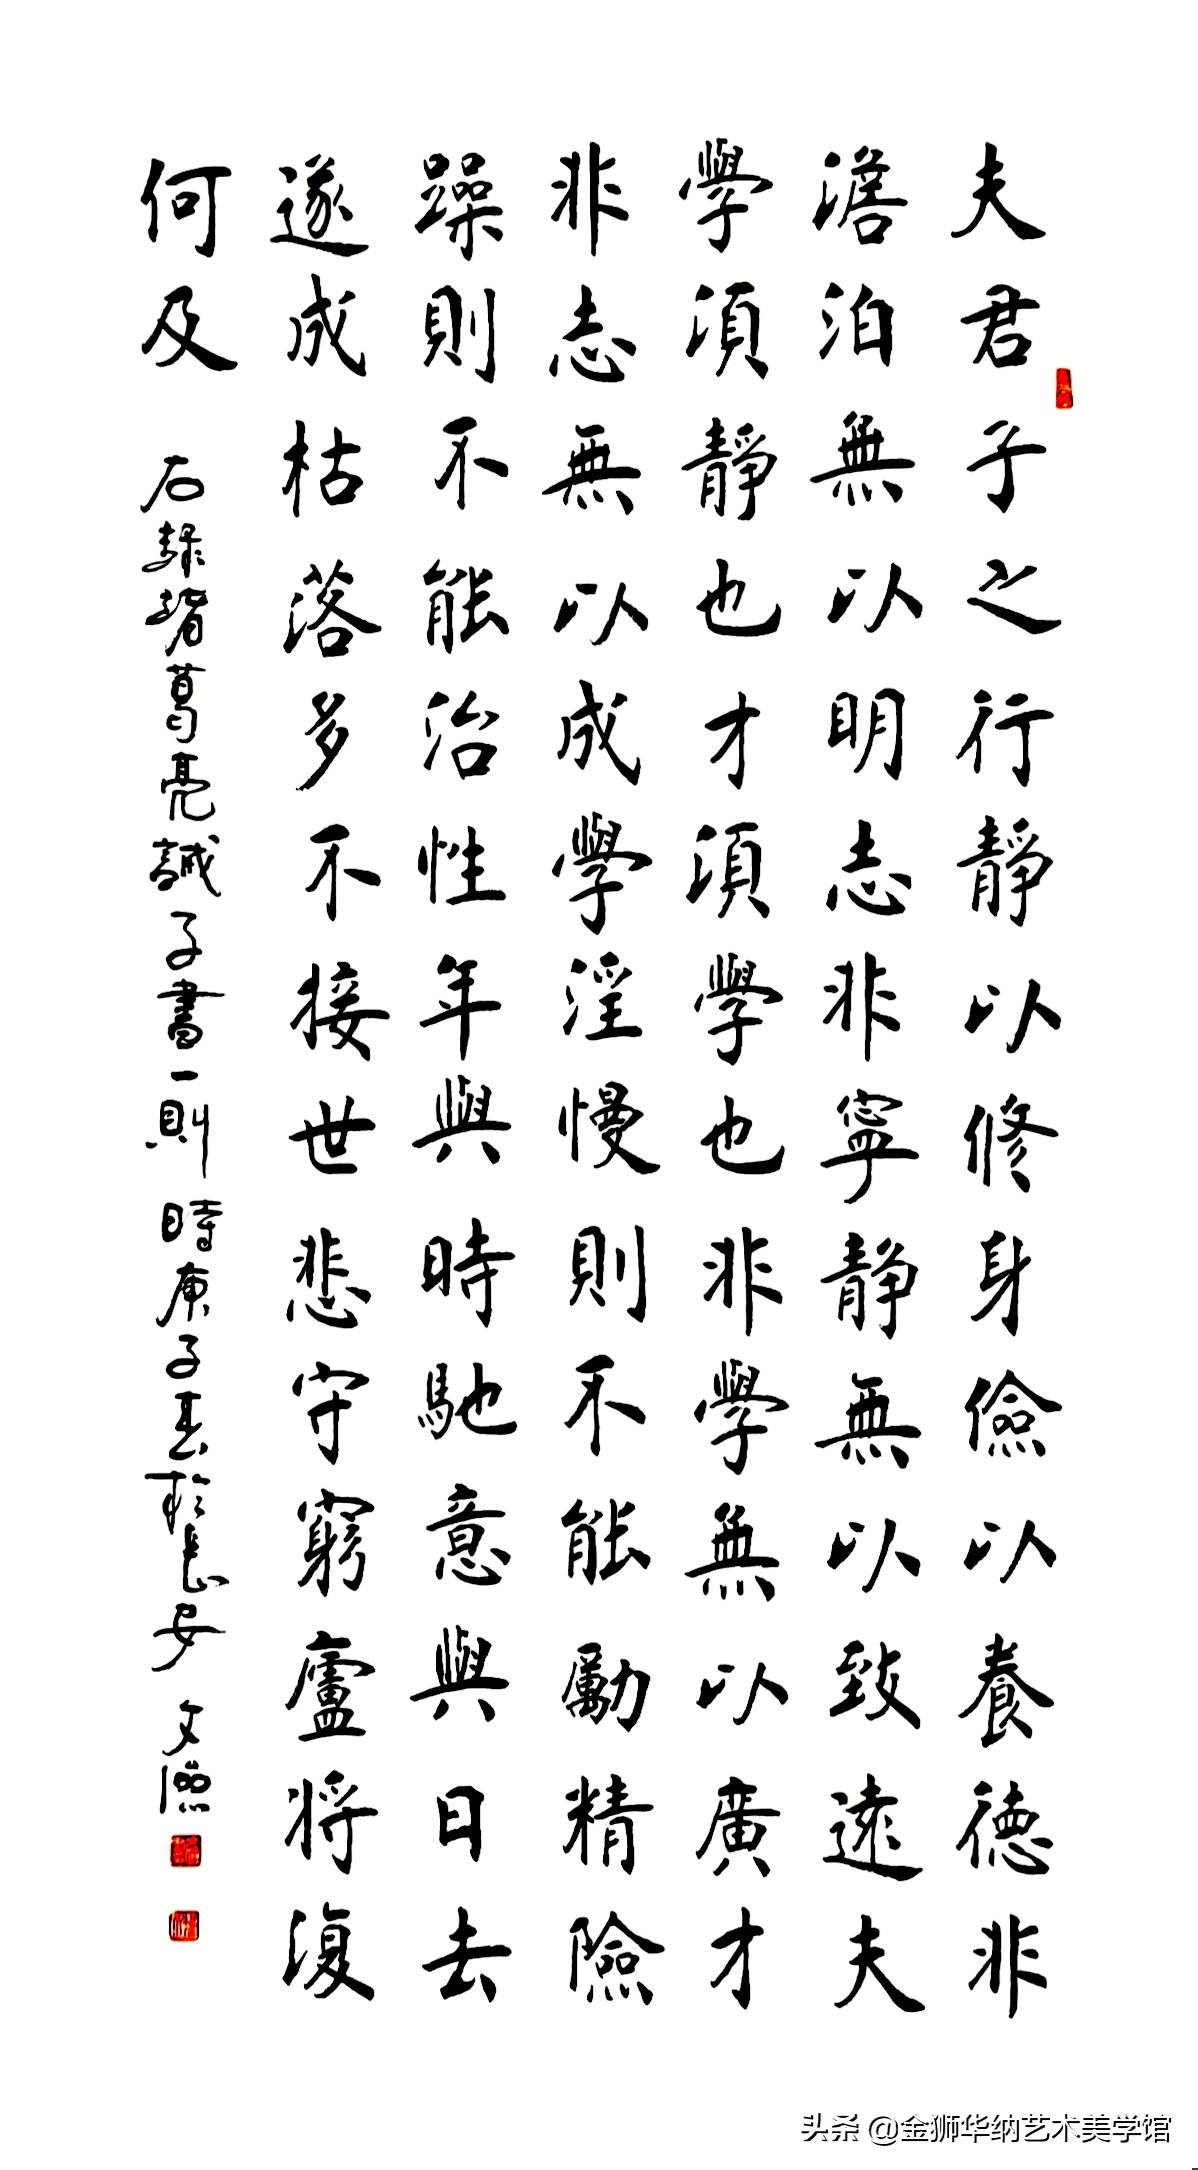 夫君子之行靜以修身儉以養德非
澹泊無以明志非寧静無以致遠夫
學須靜也才須學也非學無以廣才
非志無以成學淫慢則不能勵精險
躁則不能治性年與時馳意與日去
遂成枯落多不接世悲守窮廬将復
何及
右録諸葛亮誡子書一則時庚子春於長安
头条 @金狮华纳艺术美学馆